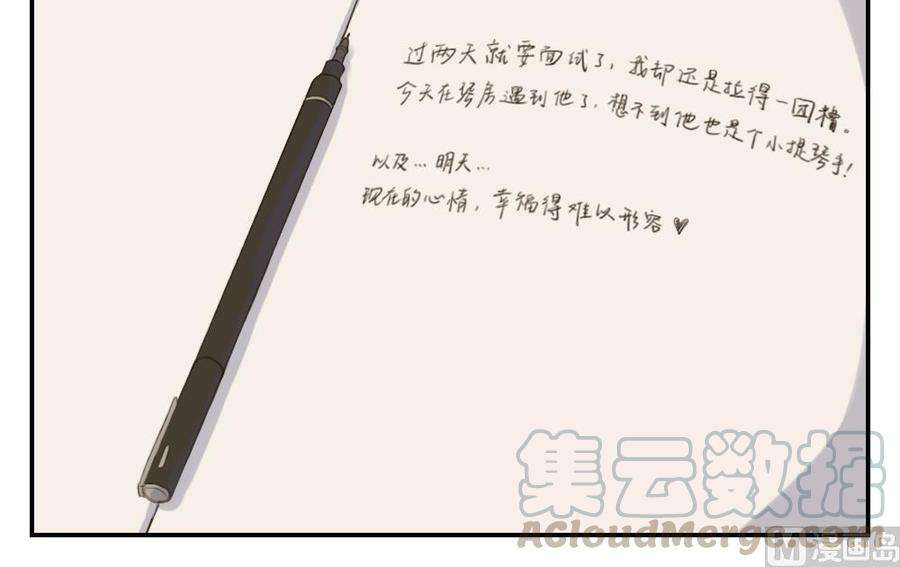 过两天就要面试了，我却还是拉得一团糟。
今天在琴房遇到他了，想不到他也是个小提琴手！
以及…明天…
现在的心情，幸福得难以形容♥
集云数据
ACloudMerge.com
M漫画岛